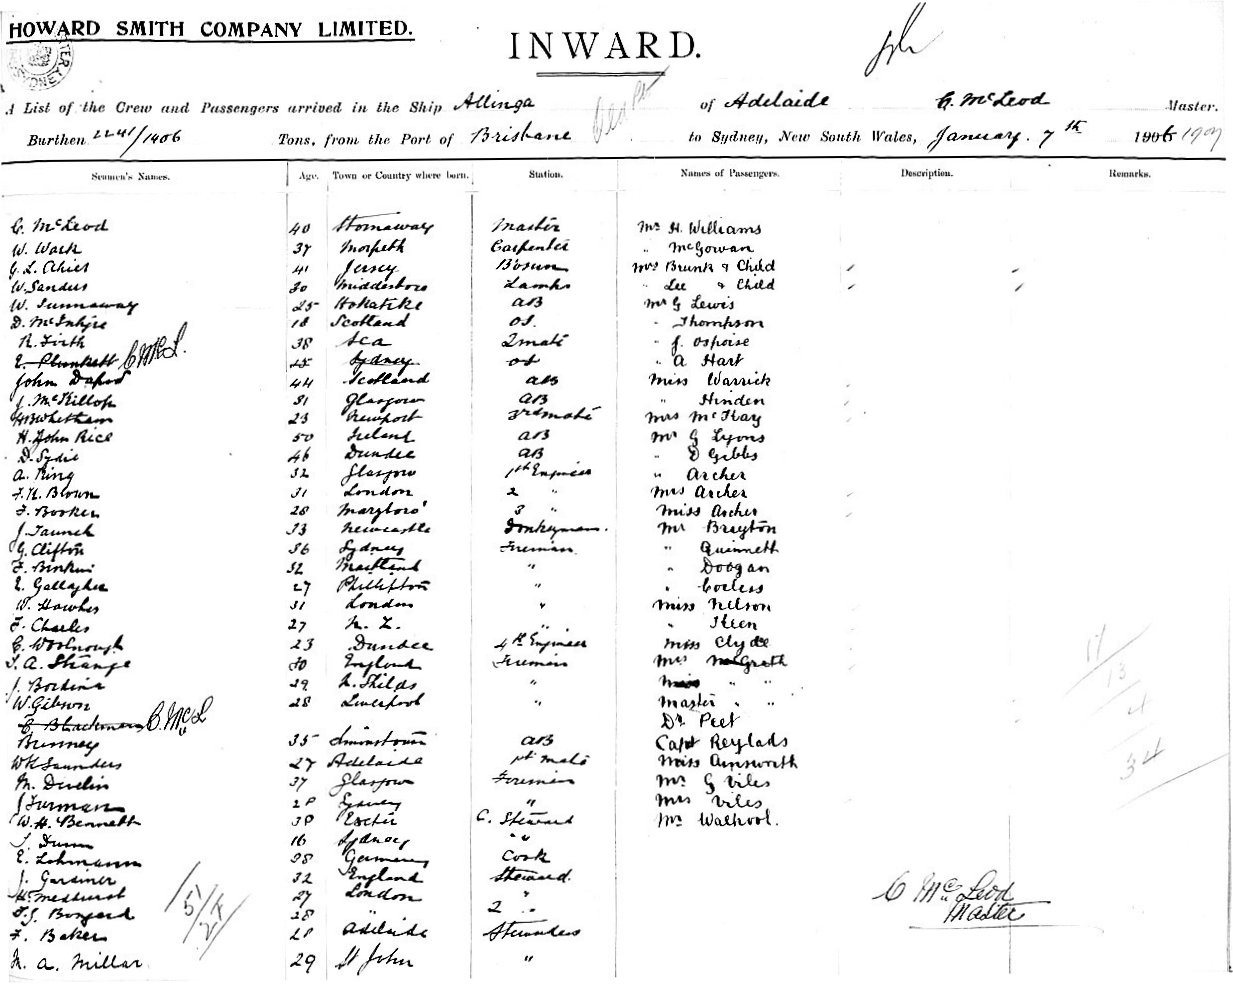 HOWARD SMITH COMPANY LIMITED.
INWARD.
SYDNEY
A List of the Crew and Passengers arrived in the Ship Allinga of Adelaide C. McLeod Master.
Burthen 2241/1406 Tons, from the Port of Brisbane to Sydney, New South Wales, January. 7th 1906 1907
Seamen's Names. Age. Town or Country where born. Station. Names of Passengers. Description. Remarks.
C. McLeod 40 Stornaway Master Mr H. Williams
W. Wark 37 Morpeth Carpenter " McGowan
G. L. 41 Jersey Bosun Mrs Brunk & Child
W. Sanders 30 Middesboro Lamps " Lee & Child
W. Tunnaway 25 Hokatike AB Mr G Lewis
D. McIntyre 18 Scotland OS. " Thompson
R. Firth 38 Sea 2 mate " J.
E. Plunkett C McL. 25 Sydney OS " A Hart
John 44 Scotland AB Miss Warrick
J. McKillop 31 Glasgow AB " Hinden
H B Whetham 23 Newport 3rd mate Mrs McKay
H. John Rice 50 Ireland AB Mr G Lyons
D. 46 Dundee AB " D Gibbs
A. King 32 Glasgow 1st Engineer " Archer
F. H. Brown 31 London 2 " Mrs Archer
F. Booker 28 Maryboro' 3 " Miss Archer
J. 33 Newcastle Donkeyman. Mr Brayton
G. Clifton 36 Sydney Fireman. " Quinnett
F. 32 Maitland " " Doogan
E. Gallagher 27 "
W. Hawkes 31 London " Miss Nelson
F. Charles 27 N. Z. "
C. Woolnough 23 Dundee 4th Engineer Miss Clyde
T. A. Strange 30 England Fireman Mrs McGrath
J. 29 N. Shilds " Miss " "
W. Gibson 28 Liverpool " Master " "
C Blackman C. McL Dr Peet
Bunney 35 Simonstown AB Capt Reylads
W H Saunders 27 Adelaide 1st mate Miss Ainsworth
M. Devlin 37 Glasgow Fireman Mr G Viles
J Furman 28 Sydney " Mrs Viles
W. H. Bennett 38 Exeter C. Steward Mr Walkool.
T. Dunn 16 Sydney " "
E. Lohmann 38 Germany Cook
J. Gardiner 32 England Steward.
H. Medhurst 27 London "
F. J. Bongard 28 " 2 "
F. Baker 28 Adelaide Stewardess
M. A. Millar 29 St John "
C McLeod
Master
11/
13
4
34
15/4
24